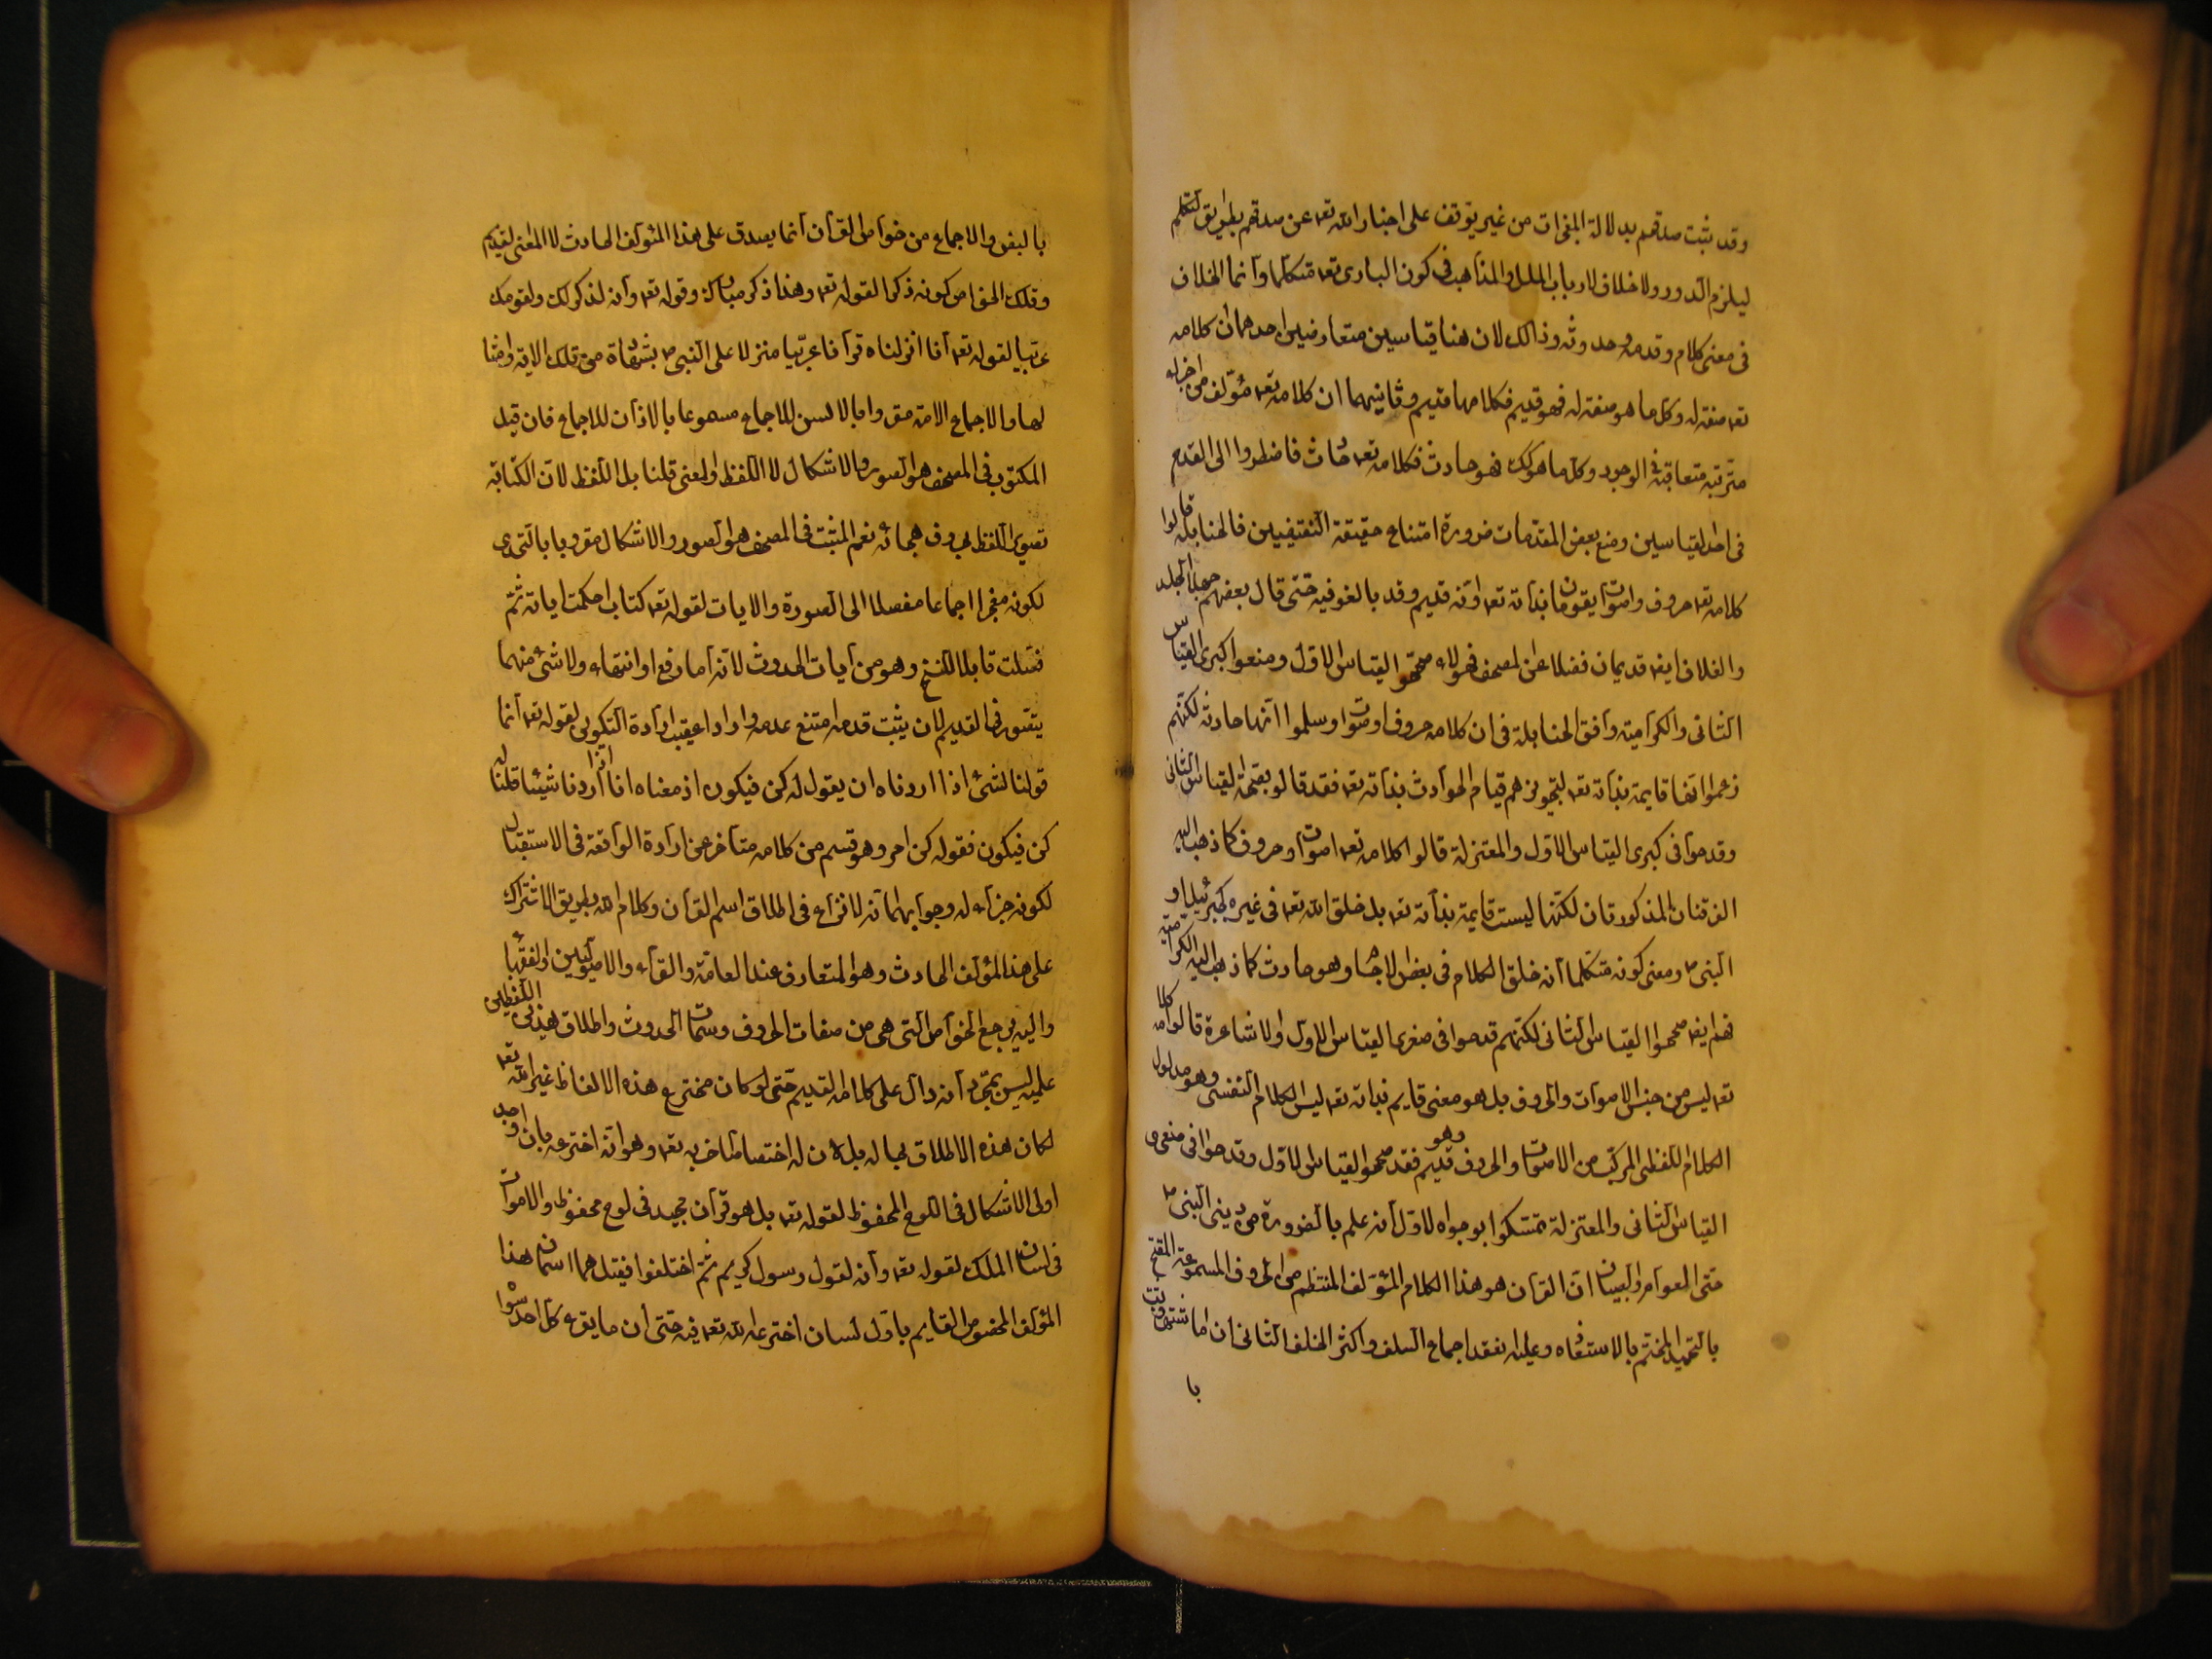 وقد ثبت صدقهم بدلالة المعجزات من غير توقف على اخبار الله تعا عن صدقهم بطريق التكلم
ليلزم الدور ولا خلاف لارباب الملل والمذاهب في كون الباري تعا متكلما وانما الخلاف
في معنى كلام وقدمه وحدوثه وذالك لان هنا قياسين متعارضين احدهما ان كلامه
تعا صفة له وكل ما هو صفة له فهو قديم فكلامه تعا قديم وثانيهما ان كلامه تعا مؤلف من اجزاء
مترتبة متعاقبة في الوجود وكل ما هو كك فهو حادث فكلامه تعا حادث فاضطروا الى القدح
في احد القياسين ومنع بعض المقدمات ضرورة امتناع حقيقة النقيضين فالحنابلة قالوا
كلامه تعا حروف واصوات يقومان بذاته تعا وانه قديم وقد بالغو فيه حتى قال بعضهم جهلا الجلد
والغلاف ايضا قديمان فضلا عن المصحف فهؤلاء صححوا القياس الاول ومنعوا كبرى القياس
الثاني والكرامية وافق الحنابلة في ان كلامه حروف واصوات وسلموا انها حادثة لكنهم
زعموا انها قايمة بذاته تعا لتجويزهم قيام الحوادث بذاته تعا فقد قالو بصحة القياس الثاني
وقدحوا في كبرى القياس الاول والمعتزلة قالوا كلامه تعا اصوات وحروف كما ذهب اليه
الفرقتان المذكورتان لكنها ليست قايمة بذاته تعا بل خلق الله تعا في غيره كجبرئيل او
النبي ص ومعنى كونه متكلما انه خلق الكلام في بعض الاجسام وهو حادث كما ذهب اليه الكرامية
فهم ايضا صححوا القياس الثاني لكنهم قدحوا في صغرى القياس الاول والاشاعرة قالوا كلامه
تعا ليس من جنس الاصوات والحروف بل هو معنى قايم بذاته تعا ليس الكلام النفسي وهو مدلول
الكلام اللفظي المركب من الاصوات والحروف وهو قديم فقد صححوا القياس الاول وقدحوا في صغرى
القياس الثاني والمعتزلة تمسكوا بوجوه الاول انه علم بالضرورة من دين النبي ص
حتى العوام والصبيان ان القران هو هذا الكلام المؤلف المنتظم من الحروف المسموعة المفتتح
بالتحميد المختتم بالاستعاذه وعليه انعقد اجماع السلف واكثر الخلف الثاني ان ما اشتهر وثبت
با
بالنص والاجماع من خواص القرآن انما يصدق على هذا المؤلف الحادث لا المعنى القديم
وتلك الخواص كونه ذكرا لقوله تعا وهذا ذكر مبارك وقوله تعا وانه لذكر لك ولقومك
عربيا لقوله تعا انا انزلناه قرآنا عربيا منزلا على النبي ص بشهادة من تلك الاية وامثا
لها والاجماع الامة مقروا بالالسن للاجماع مسموعا بالاذان للاجماع فان قيل
المكتوب في المصحف هو الصور والاشكال لا اللفظ والمعنى قلنا بل اللفظ لان الكتابة
تصوير اللفظ بحروف هجائه نعم المثبت في المصحف هو الصور والاشكال مقرونا بالتحدى
لكونه معجزا اجماعا مفصلا الى الصورة والايات لقوله تعا كتاب احكمت اياته ثم
فصلت قابلا للنسخ وهو من آيات الحدوث لانه اما رفع او انتهاء ولا شئ منهما
يتصور في القديم لان يثبت قدمه امتنع عدمه واردا عقيب ارادة التكوين لقوله تعا انما
قولنا لشئ اذا اردناه ان يقول له كن فيكون اذ معناه انا اذا اردنا شيئا قلنا له
كن فيكون فقوله كن امر وهو قسم من كلامه متأخر عن ارادة الواقعة في الاستقبال
لكونه جزاء له وجوابهما انه لا نزاع في اطلاق اسم القرآن وكلام الله بطريق الاشتراك
على هذا المؤلف الحادث وهو المتعارف عند العامة والقراء والاصوليين والفقها
واليه يرجع الخواص التي هي من صفات الحروف وسمات الحدوث واطلاق هذين اللفظين
عليه ليس بمجرد انه دال على كلامه القديم حتى لو كان مخترع هذه الالفاظ غير الله تعا
لكان هذه الاطلاق بحاله بل لان له اختصاصا اخر به تعا وهو انه اخترعه بان اوجد
اولى الاشكال في اللوح المحفوظ لقوله تعا بل هو قرآن مجيد في لوح محفوظ والاصوات
في لسان الملك لقوله تعا وانه لقول رسول كريم ثم اختلفوا فقيل هما اسمان هذا
المؤلف المخصوص القايم باول لسان اخترعه الله تعا فيه حتى ان ما يقرء كل احد سوا